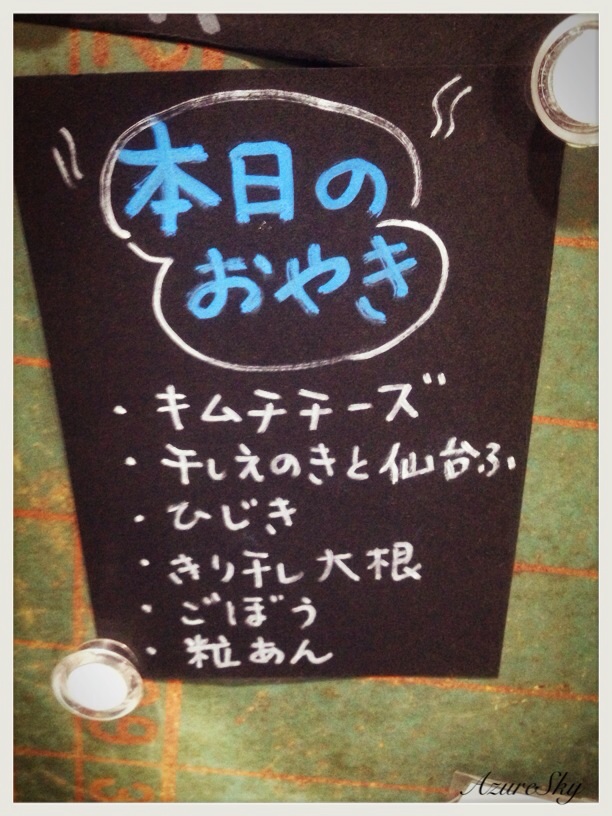 本日の
おやき
・キムチチーズ
・干しえのきと仙台ふ
・ひじき
・きり干し大根
・ごぼう
・粒あん
AzureSky